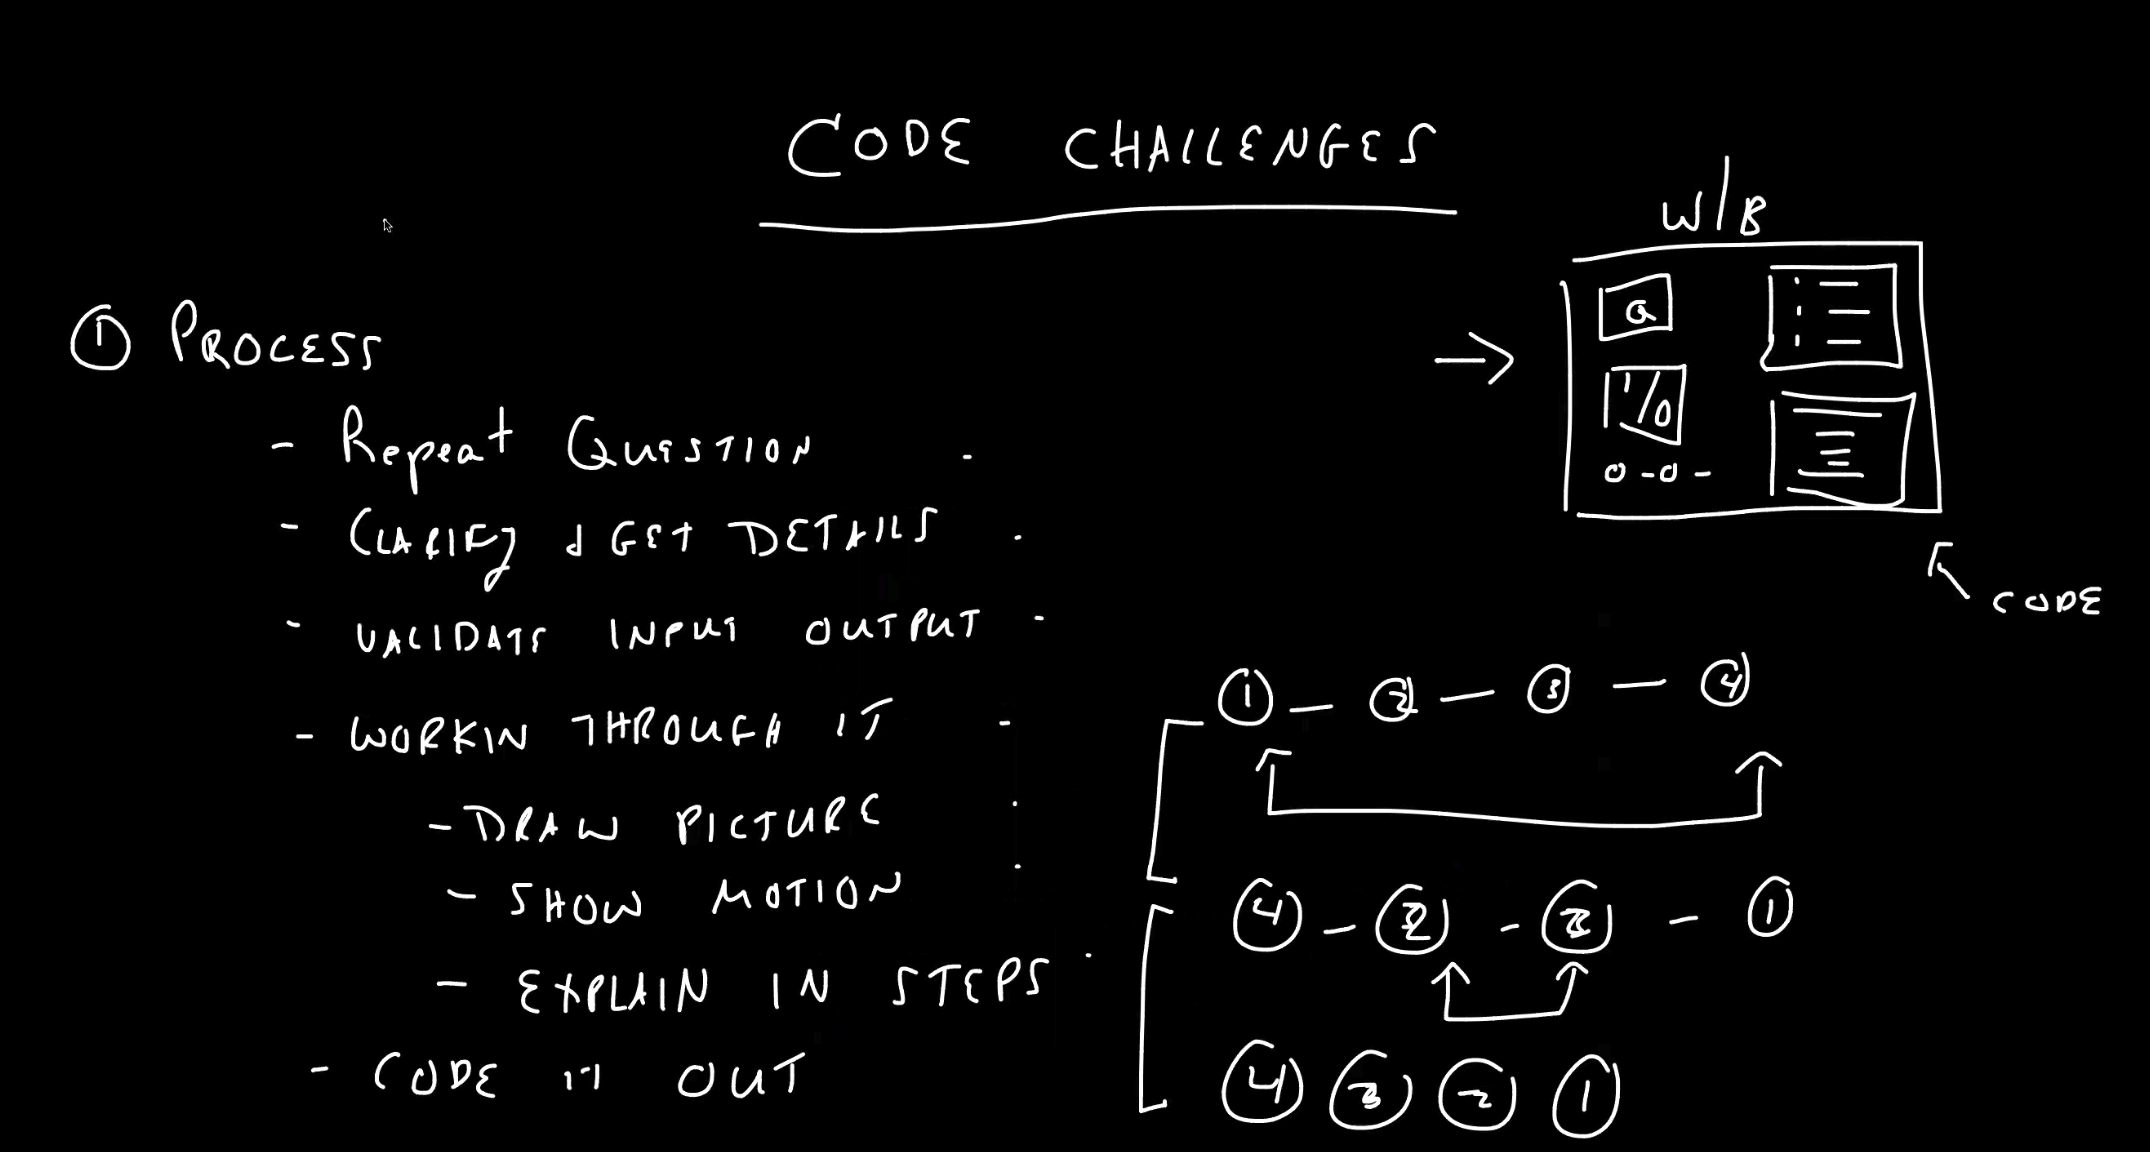 CODE CHALLENGES
W/B
① PROCESS
- Repeat QUESTION
- CLARIFY & GET DETAILS
- VALIDATE INPUT OUTPUT
- WORKIN THROUGH IT
- DRAW PICTURE
- SHOW MOTION
- EXPLAIN IN STEPS
- CODE IT OUT
Q
I/O
0-0-
CODE
① - ② - ③ - ④
④ - ② - ③ - ①
④ ③ ② ①